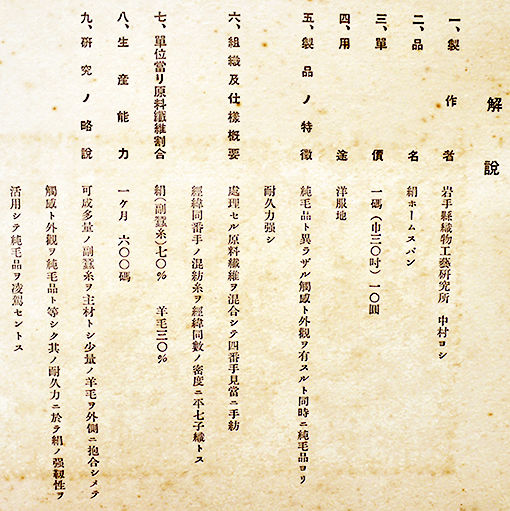 解說
一、製作者 岩手縣織物工藝硏究所 中村ヨシ
二、品名 絹ホームスパン
三、單價 一碼(巾三〇吋)一〇圓
四、用途 洋服地
五、製品ノ特徵 純毛品ト異ラザル觸感ト外觀ヲ有スルト同時ニ純毛品ヨリ
耐久力强シ
六、組織及仕樣槪要 處理セル原料纖維ヲ混合シテ四番手見當ニ手紡
經緯同番手ノ混紡糸ヲ經緯同數ノ密度ニ平七子織トス
七、單位當リ原料纖維割合 絹(副蠶糸)七〇% 羊毛三〇%
八、生產能力 一ケ月 六〇〇碼
九、硏究ノ略說 可成多量ノ副蠶糸ヲ主材トシ少量ノ羊毛ヲ外側ニ抱合シメテ
觸感ト外觀ヲ純毛品ト等シク其ノ耐久力ニ於ラ絹ノ强靱性ヲ
活用シテ純毛品ヲ凌駕セントス